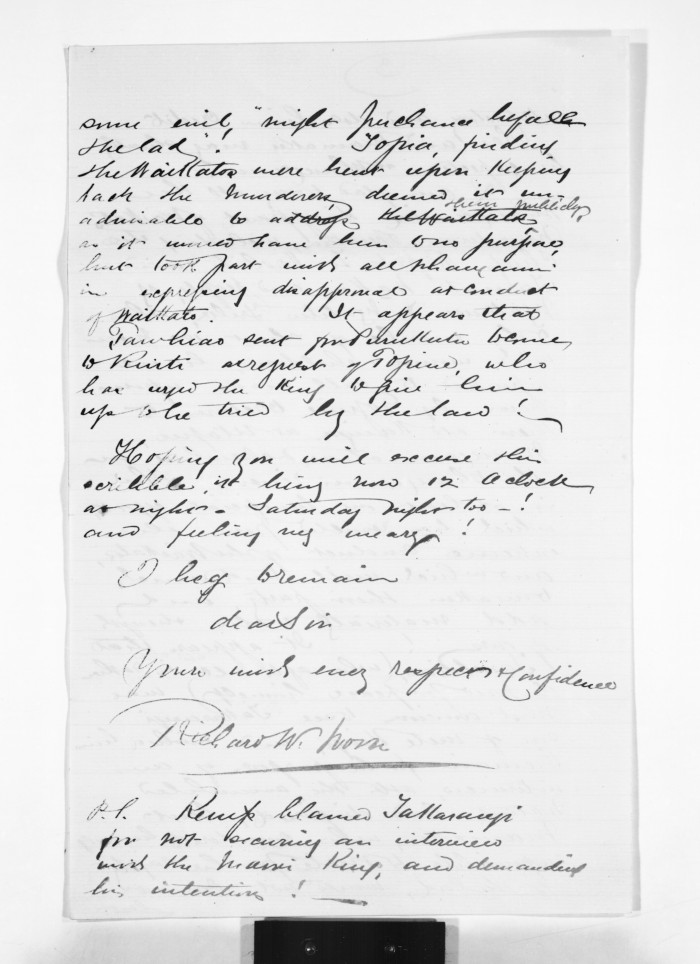 some evil, "might perchance befall
the lad". Topia, finding
the Waikatos were bent upon keeping
back the murderers, deemed it un-
advisable to address the Waikatos, them publicly,
as it would have been to no purpose,
but took part with all
in expressing disapproval at conduct
of Waikato. It appears that
Tawhiao sent for Purukutu to come
to Kuiti at request of Topine, who
has urged the King to give him
up to be tried by the law! —
Hoping you will excuse this
scribble, it being now 12 oclock
at night - Saturday night too - !
and feeling very weary!
I beg to remain
dear Sir
Yours with every respect & Confidence
Richard W. Woon
P.S. Kemp blamed Takarangi
for not securing an interview
with the Maori King, and demanding
his intentions! —